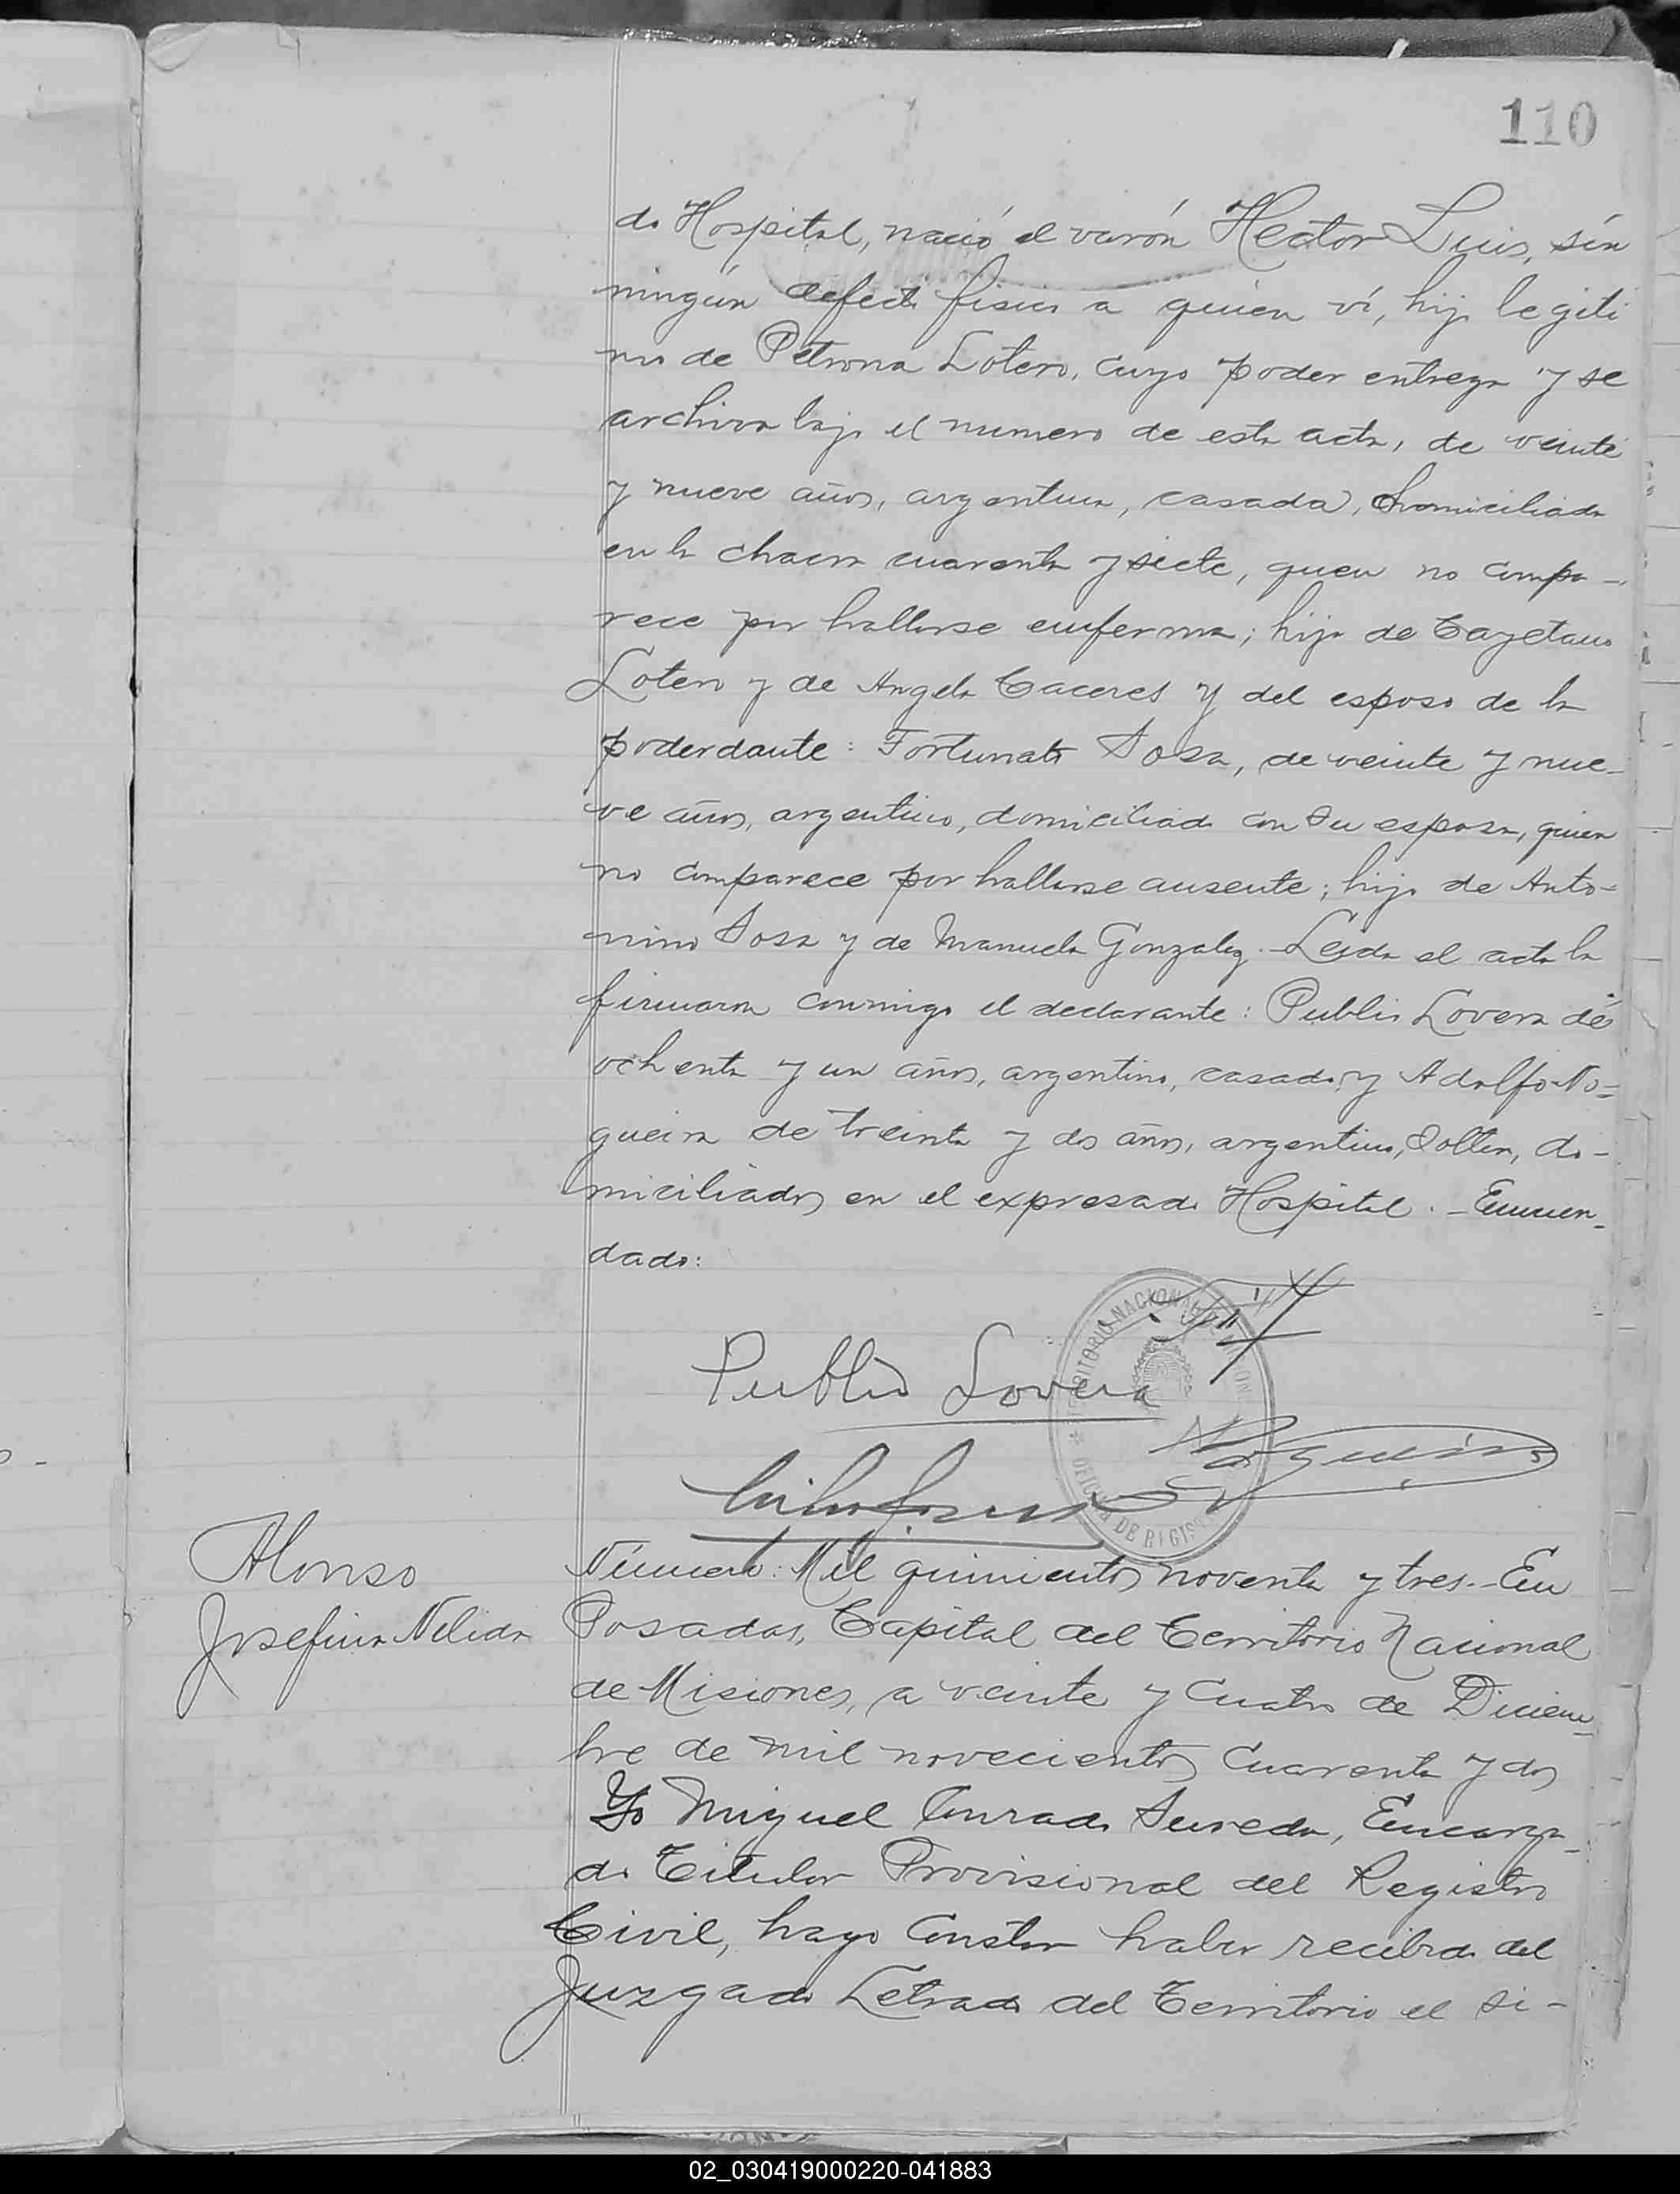 110
do Hospital, nació el varón Hector Luis, sín
ningún defecto fisico a quien ví, hijo legiti
mo de Petrona Lotero, cuyo poder entrega y se
archiva bajo el numero de esta acta, de veinte
y nueve años, argentina, casada, domiciliada
en la chacra cuarenta y siete, quien no compa-
rece por hallarse enferma; hija de Cayetano
Lotero y de Angela Caceres y del esposo de la
poderdante: Fortunato Sosa, de veinte y nue-
ve años, argentino, domiciliado con su esposa, quien
no comparece por hallarse ausente; hijo de Anto-
nino Sosa y de Manuela Gonzalez. Leida el acta la
firmaron conmigo el declarante: Publio Lovera de
ochenta y un años, argentino, casado y Adolfo No=
gueira de treinta y dos años, argentino, soltero, do-
miciliados en el expresado Hospital. - Enmen-
dado:
TERRITORIO NACIONAL DE MISIONES
Publio Lovera
Nogueira
OFICINA DE REGISTRO
Alonso
Josefina Nelida
Número: Mil quinientos noventa y tres.- En
Posadas, Capital del Territorio Nacional
de Misiones, a veinte y cuatro de Diciem-
bre de mil novecientos cuarenta y dos
Yo Miguel Conrado Sureda, Encarga-
do Titular Provisional del Registro
Civil, hago constar haber recibido del
Juzgado Letrado del Territorio el si-
02_030419000220-041883